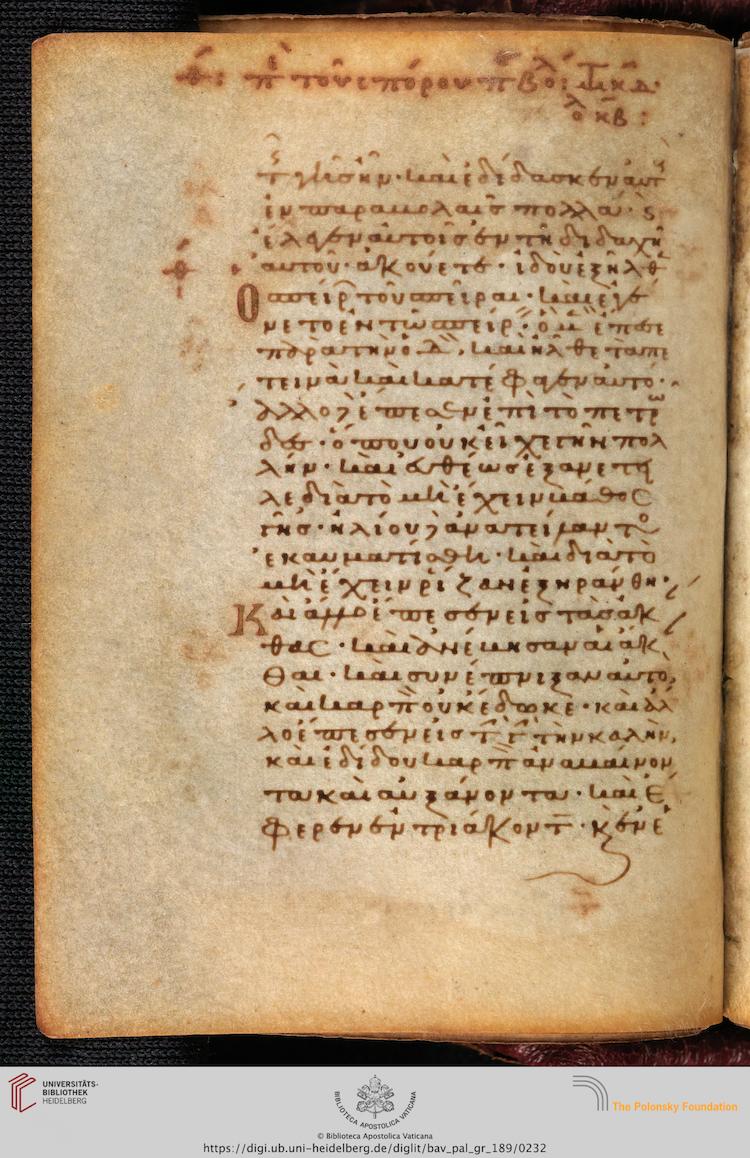 θ: πε τοῦ σπόρου
τ γῆς ἦν · καὶ ἐδίδασκεν αὐτ
ἐν παραβολαῖς πολλα · ϛ
ἔλεγεν αὐτοῖς ἐν τῆ διδαχῆ
αὐτοῦ · ἀκούετε · ἰδοὺ ἐξῆλθ
ὁ σπείρ τοῦ σπεῖραι · καὶ ἐγέ
νετο ἐν τῶ σπείρ · ὃ μ ἔπεσε
παρὰ τὴν ὁδ, καὶ ἦλθε τὰ πε
τεινὰ καὶ κατέφαγεν αὐτό ·
ἄλλο δ ἔπεσεν ἐπὶ τὸ πετρ
δες · ὅπου οὐκ εἶχε γῆν πολ
λήν · καὶ εὐθέως ἐξανέτει
λε διὰ τὸ μὴ ἔχειν βάθος
γῆς · ἡλίου δ ἀνατείλαντο
ἐκαυματίσθη · καὶ διὰ τὸ
μὴ ἔχειν ῥίζαν ἐξηράνθη ·
Καὶ ἄλλο ἔπεσεν εἰς τὰς ἀκ
θας · καὶ ἀνέβησαν αἱ ἄκ
θαι · καὶ συνέπνιξαν αὐτό,
καὶ καρπ οὐκ ἔδωκε · καὶ ἄλ
λο ἔπεσεν εἰς τ γ τὴν καλήν,
καὶ ἐδίδου καρπ ἀναβαίνον
τα καὶ αὐξάνοντα · καὶ ἔ
φερεν ἐν τριάκοντ · κ ἐν ἑ
UNIVERSITÄTS-
BIBLIOTHEK
HEIDELBERG
BIBLIOTECA APOSTOLICA VATICANA
The Polonsky Foundation
© Biblioteca Apostolica Vaticana
https://digi.ub.uni-heidelberg.de/diglit/bav_pal_gr_189/0232